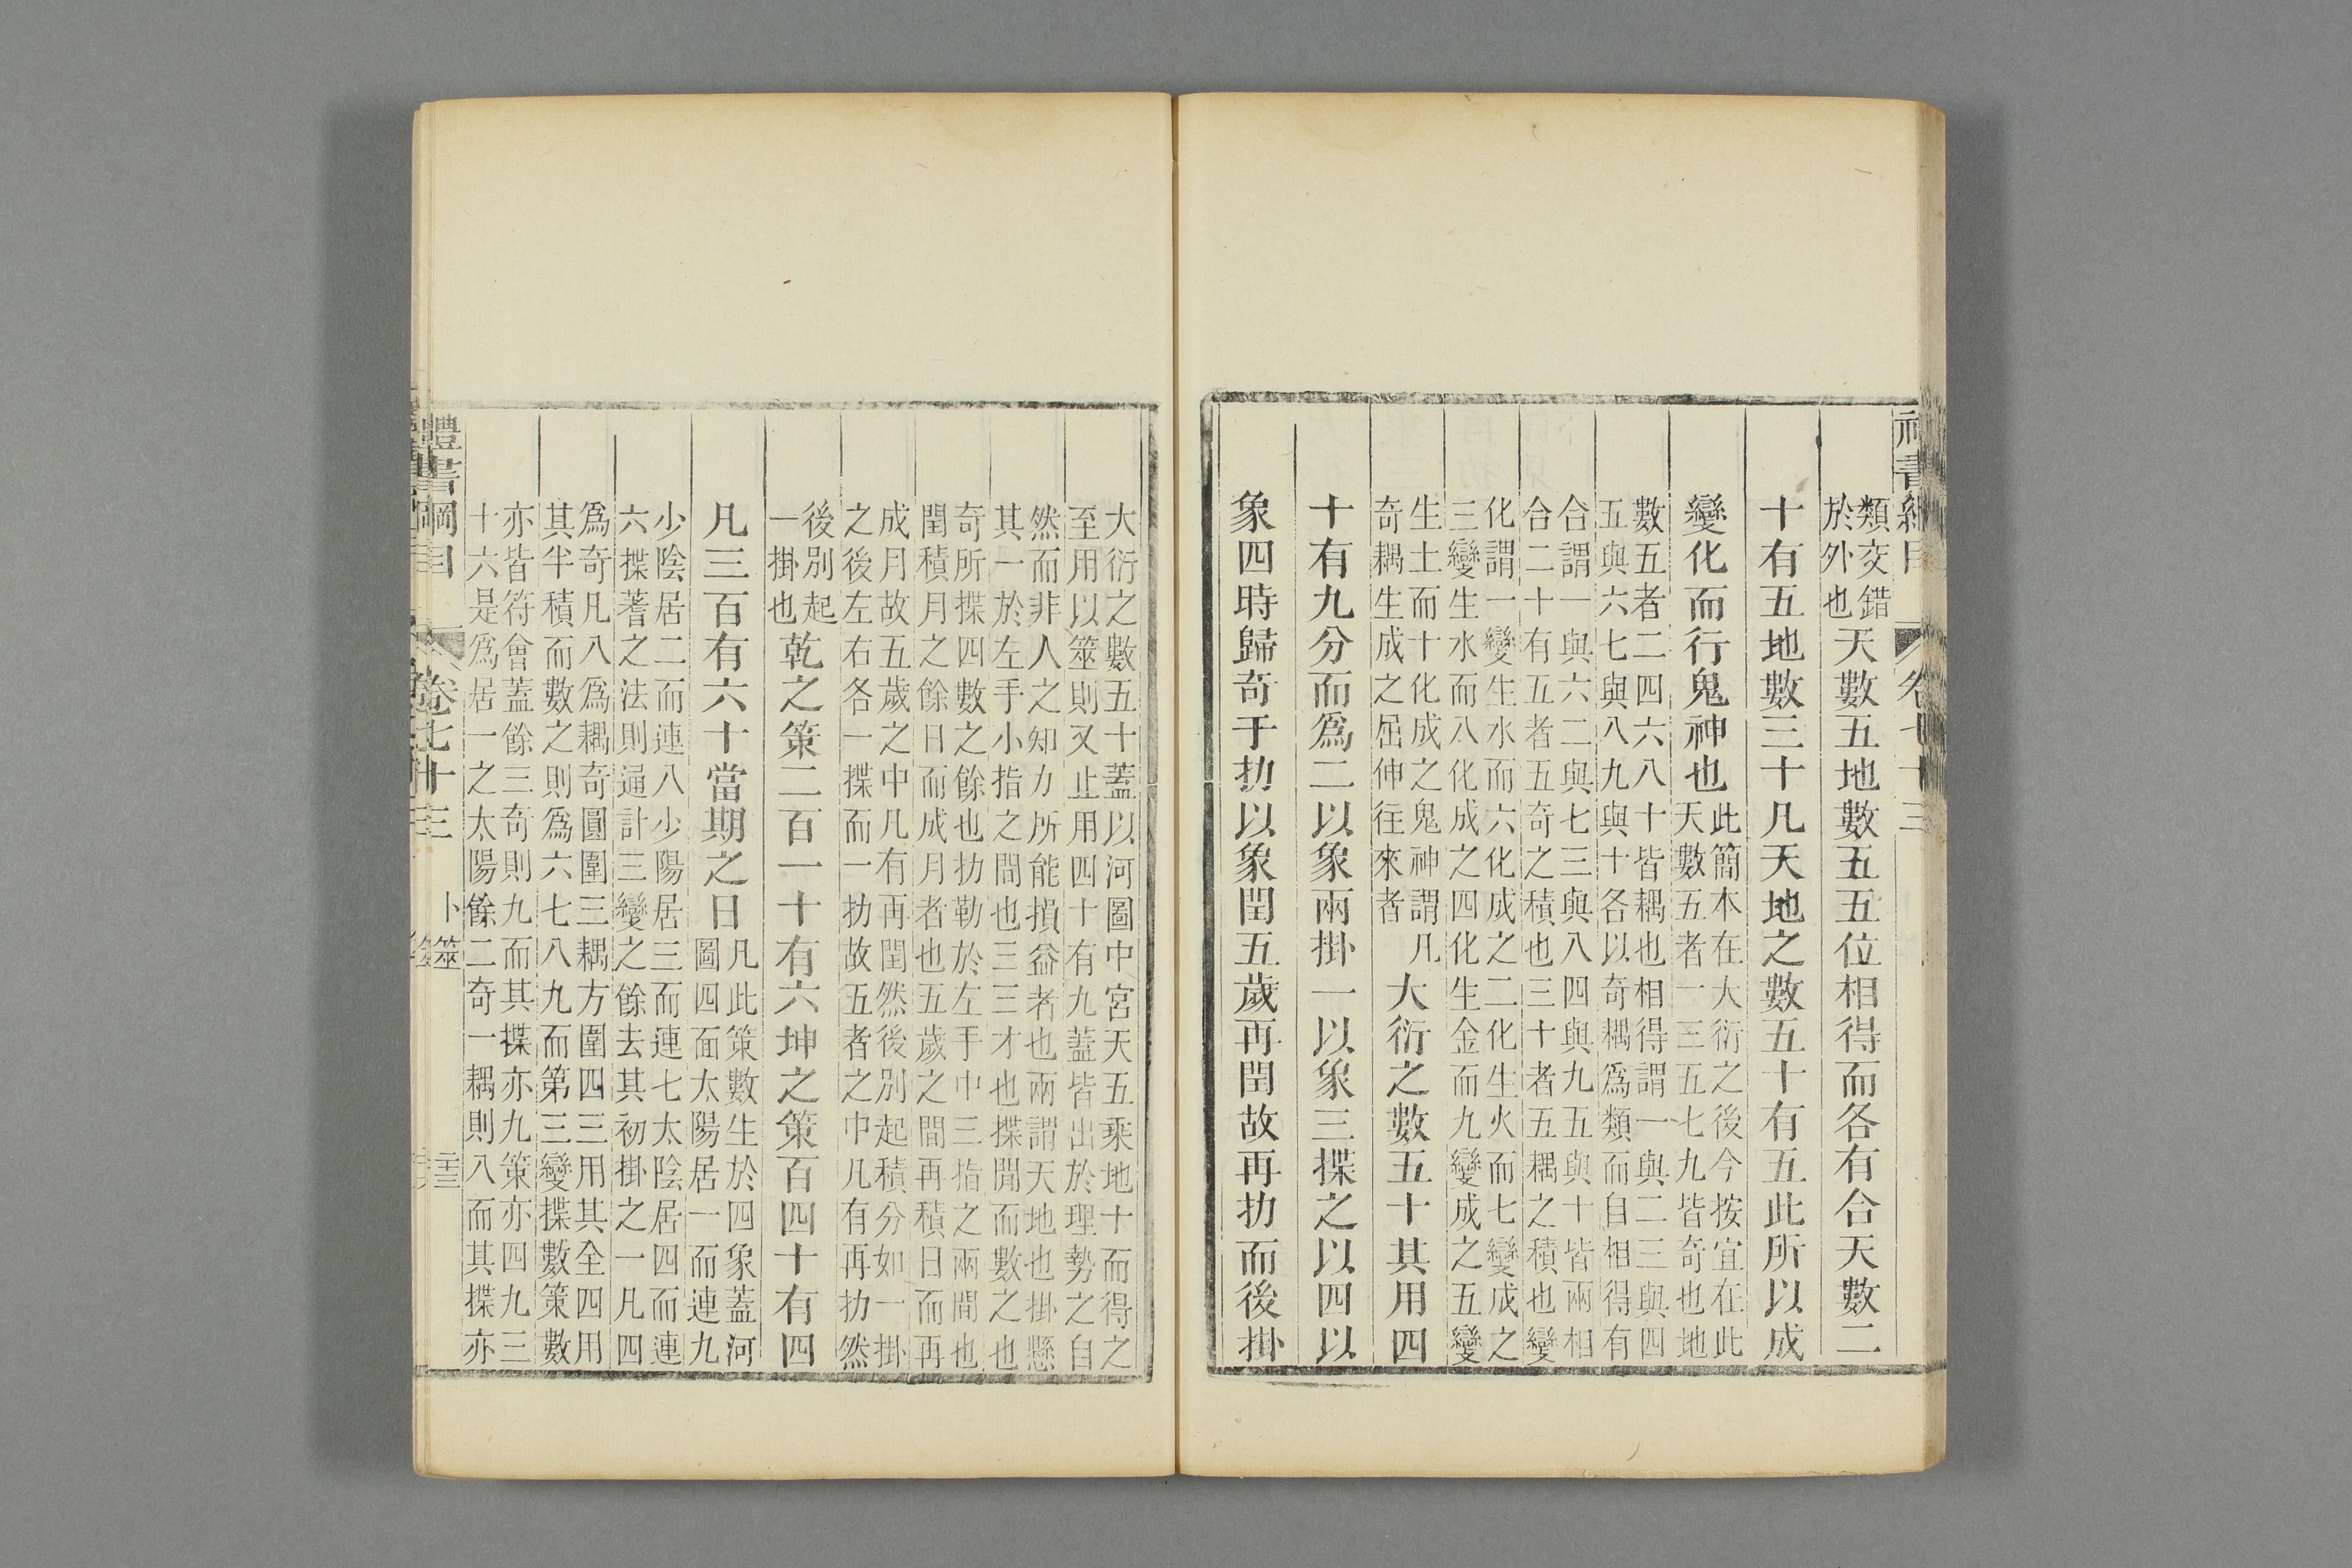 禮書綱目 卷七十三
類交錯
於外也
天數五地數五五位相得而各有合天數二
十有五地數三十凡天地之數五十有五此所以成
變化而行鬼神也
此簡本在大衍之後今按宜在此
天數五者一三五七九皆奇也地
數五者二四六八十皆耦也相得謂一與二三與四
五與六七與八九與十各以奇耦爲類而自相得有
合謂一與六二與七三與八四與九五與十皆兩相
合二十有五者五奇之積也三十者五耦之積也變
化謂一變生水而六化成之二化生火而七變成之
三變生水而八化成之四化生金而九變成之五變
生土而十化成之鬼神謂凡
奇耦生成之屈伸往來者
大衍之數五十其用四
十有九分而爲二以象兩掛一以象三揲之以四以
象四時歸奇于扐以象閏五歲再閏故再扐而後掛
大衍之數五十蓋以河圖中宮天五乘地十而得之
至用以筮則又止用四十有九蓋皆出於理勢之自
然而非人之知力所能損益者也兩謂天地也掛懸
其一於左手小指之間也三三才也揲閒而數之也
奇所揲四數之餘也扐勒於左手中三指之兩間也
閏積月之餘日而成月者也五歲之間再積日而再
成月故五歲之中凡有再閏然後別起積分如一掛
之後左右各一揲而一扐故五者之中凡有再扐然
後別起
一掛也
乾之策二百一十有六坤之策百四十有四
凡三百有六十當期之日
凡此策數生於四象蓋河
圖四面太陽居一而連九
少陰居二而連八少陽居三而連七太陰居四而連
六揲蓍之法則通計三變之餘去其初掛之一凡四
爲奇凡八爲耦奇圓圍三耦方圍四三用其全四用
其半積而數之則爲六七八九而第三變揲數策數
亦皆符會蓋餘三奇則九而其揲亦九策亦四九三
十六是爲居一之太陽餘二奇一耦則八而其揲亦
禮書綱目 卷七十三 卜筮 三